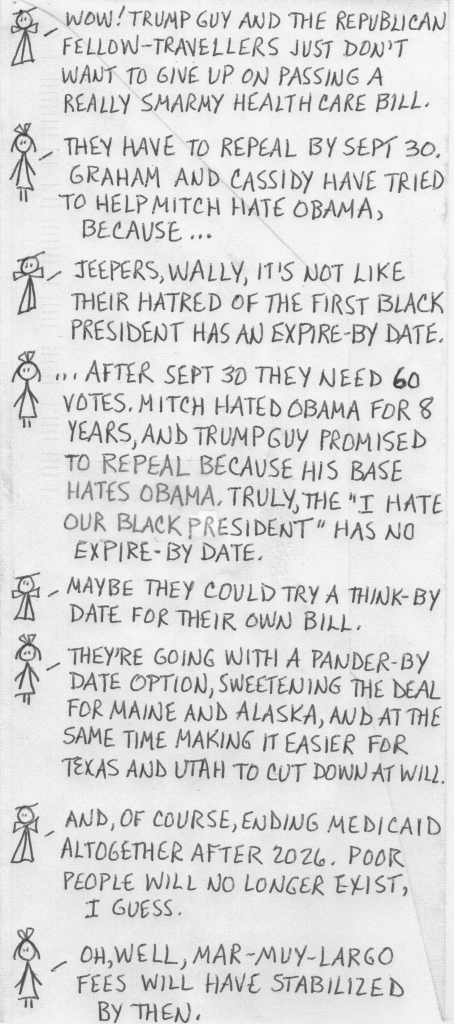 WOW! TRUMP GUY AND THE REPUBLICAN
FELLOW-TRAVELLERS JUST DON'T
WANT TO GIVE UP ON PASSING A
REALLY SMARMY HEALTH CARE BILL.
THEY HAVE TO REPEAL BY SEPT 30.
GRAHAM AND CASSIDY HAVE TRIED
TO HELP MITCH HATE OBAMA,
BECAUSE ...
JEEPERS, WALLY, IT'S NOT LIKE
THEIR HATRED OF THE FIRST BLACK
PRESIDENT HAS AN EXPIRE-BY DATE.
... AFTER SEPT 30 THEY NEED 60
VOTES. MITCH HATED OBAMA FOR 8
YEARS, AND TRUMP GUY PROMISED
TO REPEAL BECAUSE HIS BASE
HATES OBAMA. TRULY, THE "I HATE
OUR BLACK PRESIDENT" HAS NO
EXPIRE-BY DATE.
MAYBE THEY COULD TRY A THINK-BY
DATE FOR THEIR OWN BILL.
THEY'RE GOING WITH A PANDER-BY
DATE OPTION, SWEETENING THE DEAL
FOR MAINE AND ALASKA, AND AT THE
SAME TIME MAKING IT EASIER FOR
TEXAS AND UTAH TO CUT DOWN AT WILL.
AND, OF COURSE, ENDING MEDICAID
ALTOGETHER AFTER 2026. POOR
PEOPLE WILL NO LONGER EXIST,
I GUESS.
OH, WELL, MAR-MUY-LARGO
FEES WILL HAVE STABILIZED
BY THEN.